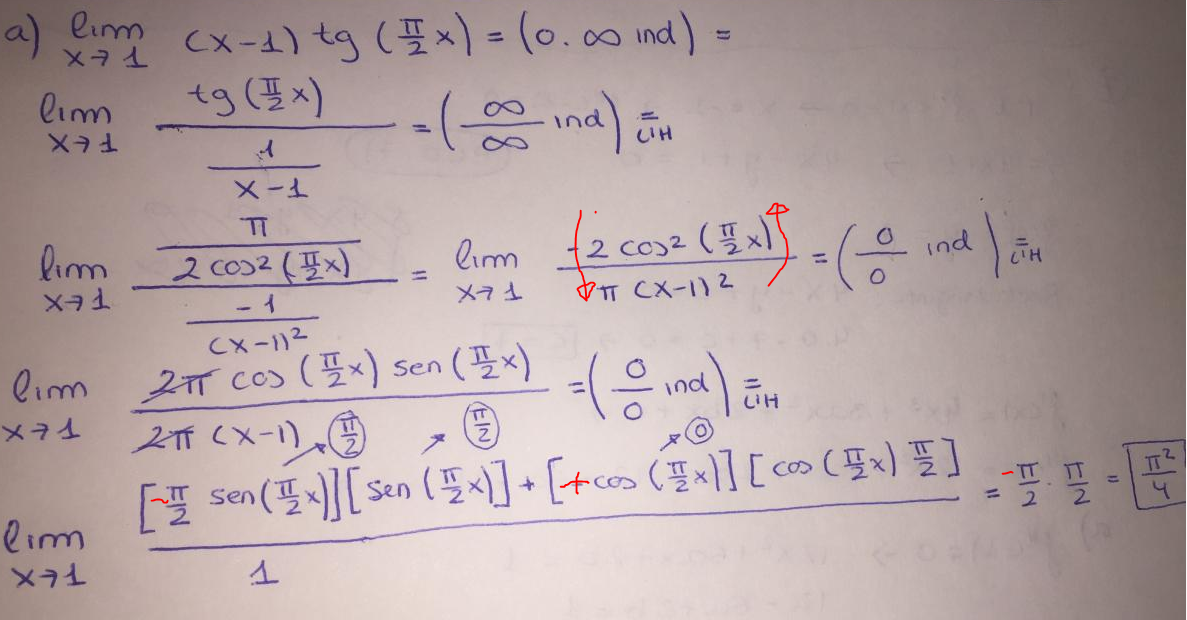 a) lim x→1 (x-1) tg (π/2 x) = (0.∞ ind) =
lim x→1 tg(π/2 x) / (1/(x-1)) = (∞/∞ ind) = L'H
lim x→1 (π / (2 cos² (π/2 x))) / (-1/(x-1)²) = lim x→1 -2 cos² (π/2 x) / π (x-1)² = (0/0 ind) = L'H
lim x→1 2π cos (π/2 x) sen (π/2 x) / 2π (x-1) = (0/0 ind) = L'H
π/2 π/2 0
lim x→1 [-π/2 sen(π/2 x)][sen (π/2 x)] + [+cos (π/2 x)][cos (π/2 x) π/2] / 1 = -π/2 · π/2 = π²/4